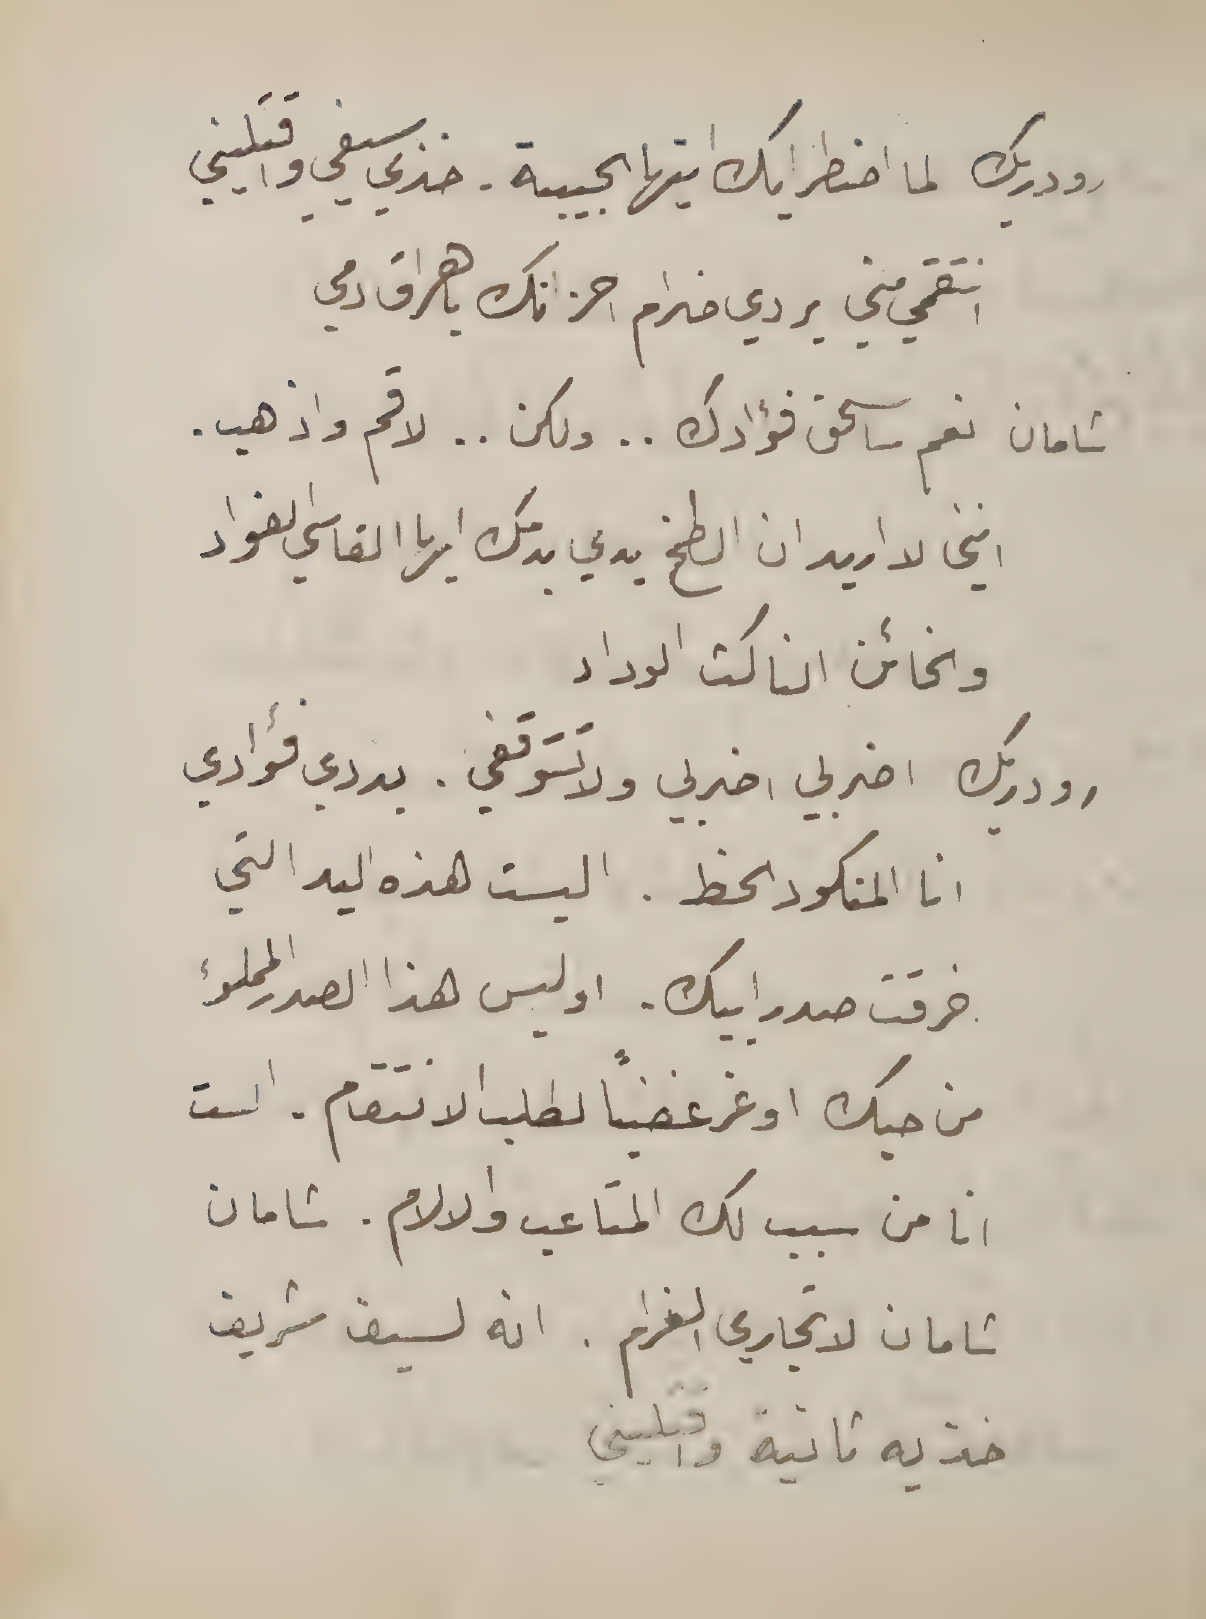 رودريك لما اضطرابك ايتها الحبيبة . خذي سيفي واقتليني
انتقمي مني بردي ضرام احزانك باهراق دمي
شامان نعم ساسحق فؤادك .. ولكن .. لا قم واذهب .
انني لا اريد ان الطخ يدي بدمك ايها القاسي الفواد
والخائن الناكث الوداد
رودريك اضربي اضربي ولا تتوقفي . بددي فؤادي
انا المنكود الحظ . اليست هذه اليد التي
خرقت صدر ابيك . اوليس هذا الصدر المملوء
من حبك اوغر غضباً لطلب الانتقام . الست
انا من سبب لك المتاعب والالام . شامان
شامان لا تجاري الغرام . انه لسيف شريف
خذيه ثانية واقتليني